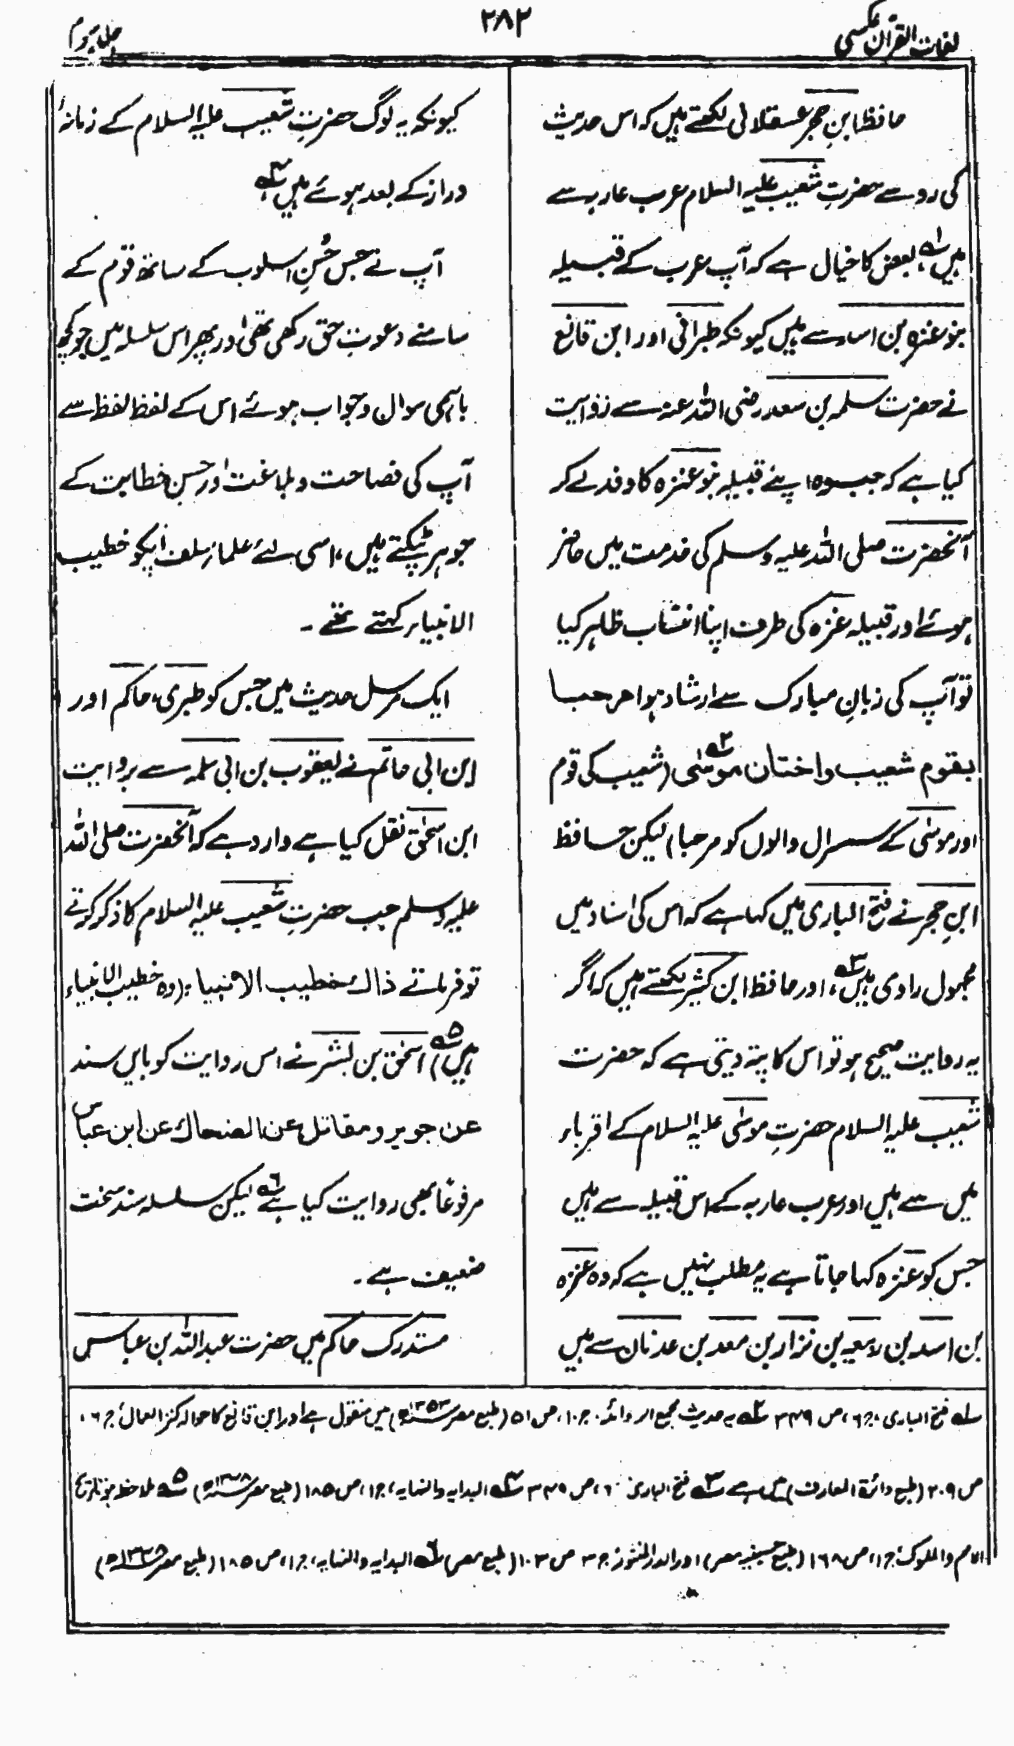 لغات القرآن عکسی
۲۸۲
جلد سوم
حافظ ابنِ حجر عسقلانی لکھتے ہیں کہ اس حدیث
کی رو سے حضرتِ شعیب علیہ السلام عرب عاربہ سے
ہیں۱ بعض کا خیال ہے کہ آپ عرب کے قبیلہ
بنو عنزہ بن اسد سے ہیں کیونکہ طبرانی اور ابن قانع
نے حضرت سلمہ بن سعد رضی اللہ عنہ سے روایت
کیا ہے کہ جب وہ اپنے قبیلہ بنو عنزہ کا وفد لے کر
آنحضرت صلی اللہ علیہ وسلم کی خدمت میں حاضر
ہوئے اور قبیلہ عنزہ کی طرف اپنا انتساب ظاہر کیا
تو آپ کی زبانِ مبارک سے ارشاد ہوا مرحبا
بقوم شعیب واختان موسٰی۲ (شعیب کی قوم
اور موسٰی کے سسرال والوں کو مرحبا) لیکن حافظ
ابنِ حجر نے فتح الباری میں کہا ہے کہ اس کی اسناد میں
مجہول راوی ہیں۳، اور حافظ ابن کثیر لکھتے ہیں کہ اگر
یہ روایت صحیح ہو تو اس کا پتہ دیتی ہے کہ حضرت
شعیب علیہ السلام حضرتِ موسٰی علیہ السلام کے اقرباء
میں سے ہیں اور عرب عاربہ کے اس قبیلہ سے ہیں
جس کو عنزہ کہا جاتا ہے یہ مطلب نہیں ہے کہ وہ عنزہ
بن اسد بن ربیعہ بن نزار بن معد بن عدنان سے ہیں
کیونکہ یہ لوگ حضرتِ شعیب علیہ السلام کے زمانۂ
دراز کے بعد ہوئے ہیں۴
آپ نے جس حُسنِ اسلوب کے ساتھ قوم کے
سامنے دعوتِ حق رکھی تھی اور پھر اس سلسلہ میں جو کچھ
باہمی سوال و جواب ہوئے اس کے لفظ لفظ سے
آپ کی فصاحت و بلاغت اور حسنِ خطابت کے
جوہر ٹپکتے ہیں، اسی لئے علماءِ سلف آپکو خطیب
الانبیاء کہتے تھے۔
ایک مرسل حدیث میں جس کو طبری، حاکم اور
ابن ابی حاتم نے یعقوب بن ابی سلمہ سے بروایت
ابن اسحٰق نقل کیا ہے وارد ہے کہ آنحضرت صلی اللہ
علیہ وسلم جب حضرتِ شعیب علیہ السلام کا ذکر کرتے
تو فرماتے ذاك خطیب الانبیاء (وہ خطیب الانبیاء
ہیں)۵ اسحٰق بن بشر نے اس روایت کو بایں سند
عن جویبر ومقاتل عن الضحاك عن ابن عباس
مرفوعًا بھی روایت کیا ہے۶ لیکن سلسلہ سند سخت
ضعیف ہے۔
مستدرک حاکم میں حضرت عبداللہ بن عباس
۱ فتح الباری، ج ۶، ص ۳۴۹ ۲ یہ حدیث مجمع الزوائد۔ ج ۱۰، ص ۵۱ (طبع مصر ۱۳۵۳ھ) میں منقول ہے اور ابن قانع کا حوالہ کنز العمال، ج ۶،
ص ۲۰۹ (طبع دائرۃ المعارف) میں ہے ۳ فتح الباری ج ۶، ص ۳۴۹ ۴ البدایہ والنہایہ، ج ۱، ص ۱۸۵ (طبع مصر ۱۳۴۸ھ) ۵ ملاحظہ ہو تاریخ
الامم والملوک، ج ۱، ص ۱۶۸ (طبع حسینیہ مصر) اور الدر المنثور ج ۳ ص ۱۰۳ (طبع مصر) ۶ البدایہ والنہایہ، ج ۱، ص ۱۸۵ (طبع مصر ۱۳۴۸ھ)